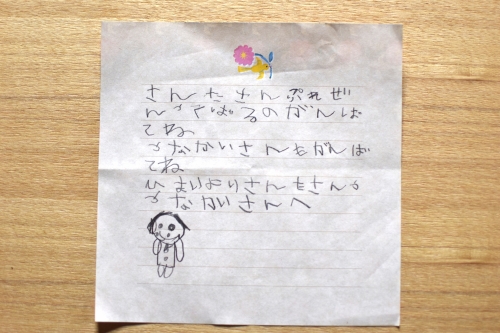 さんたさんぷれぜ
んとくばるのがんば
てね
となかいさんもがんば
てね
まいよりさんたさんと
となかいさんへ